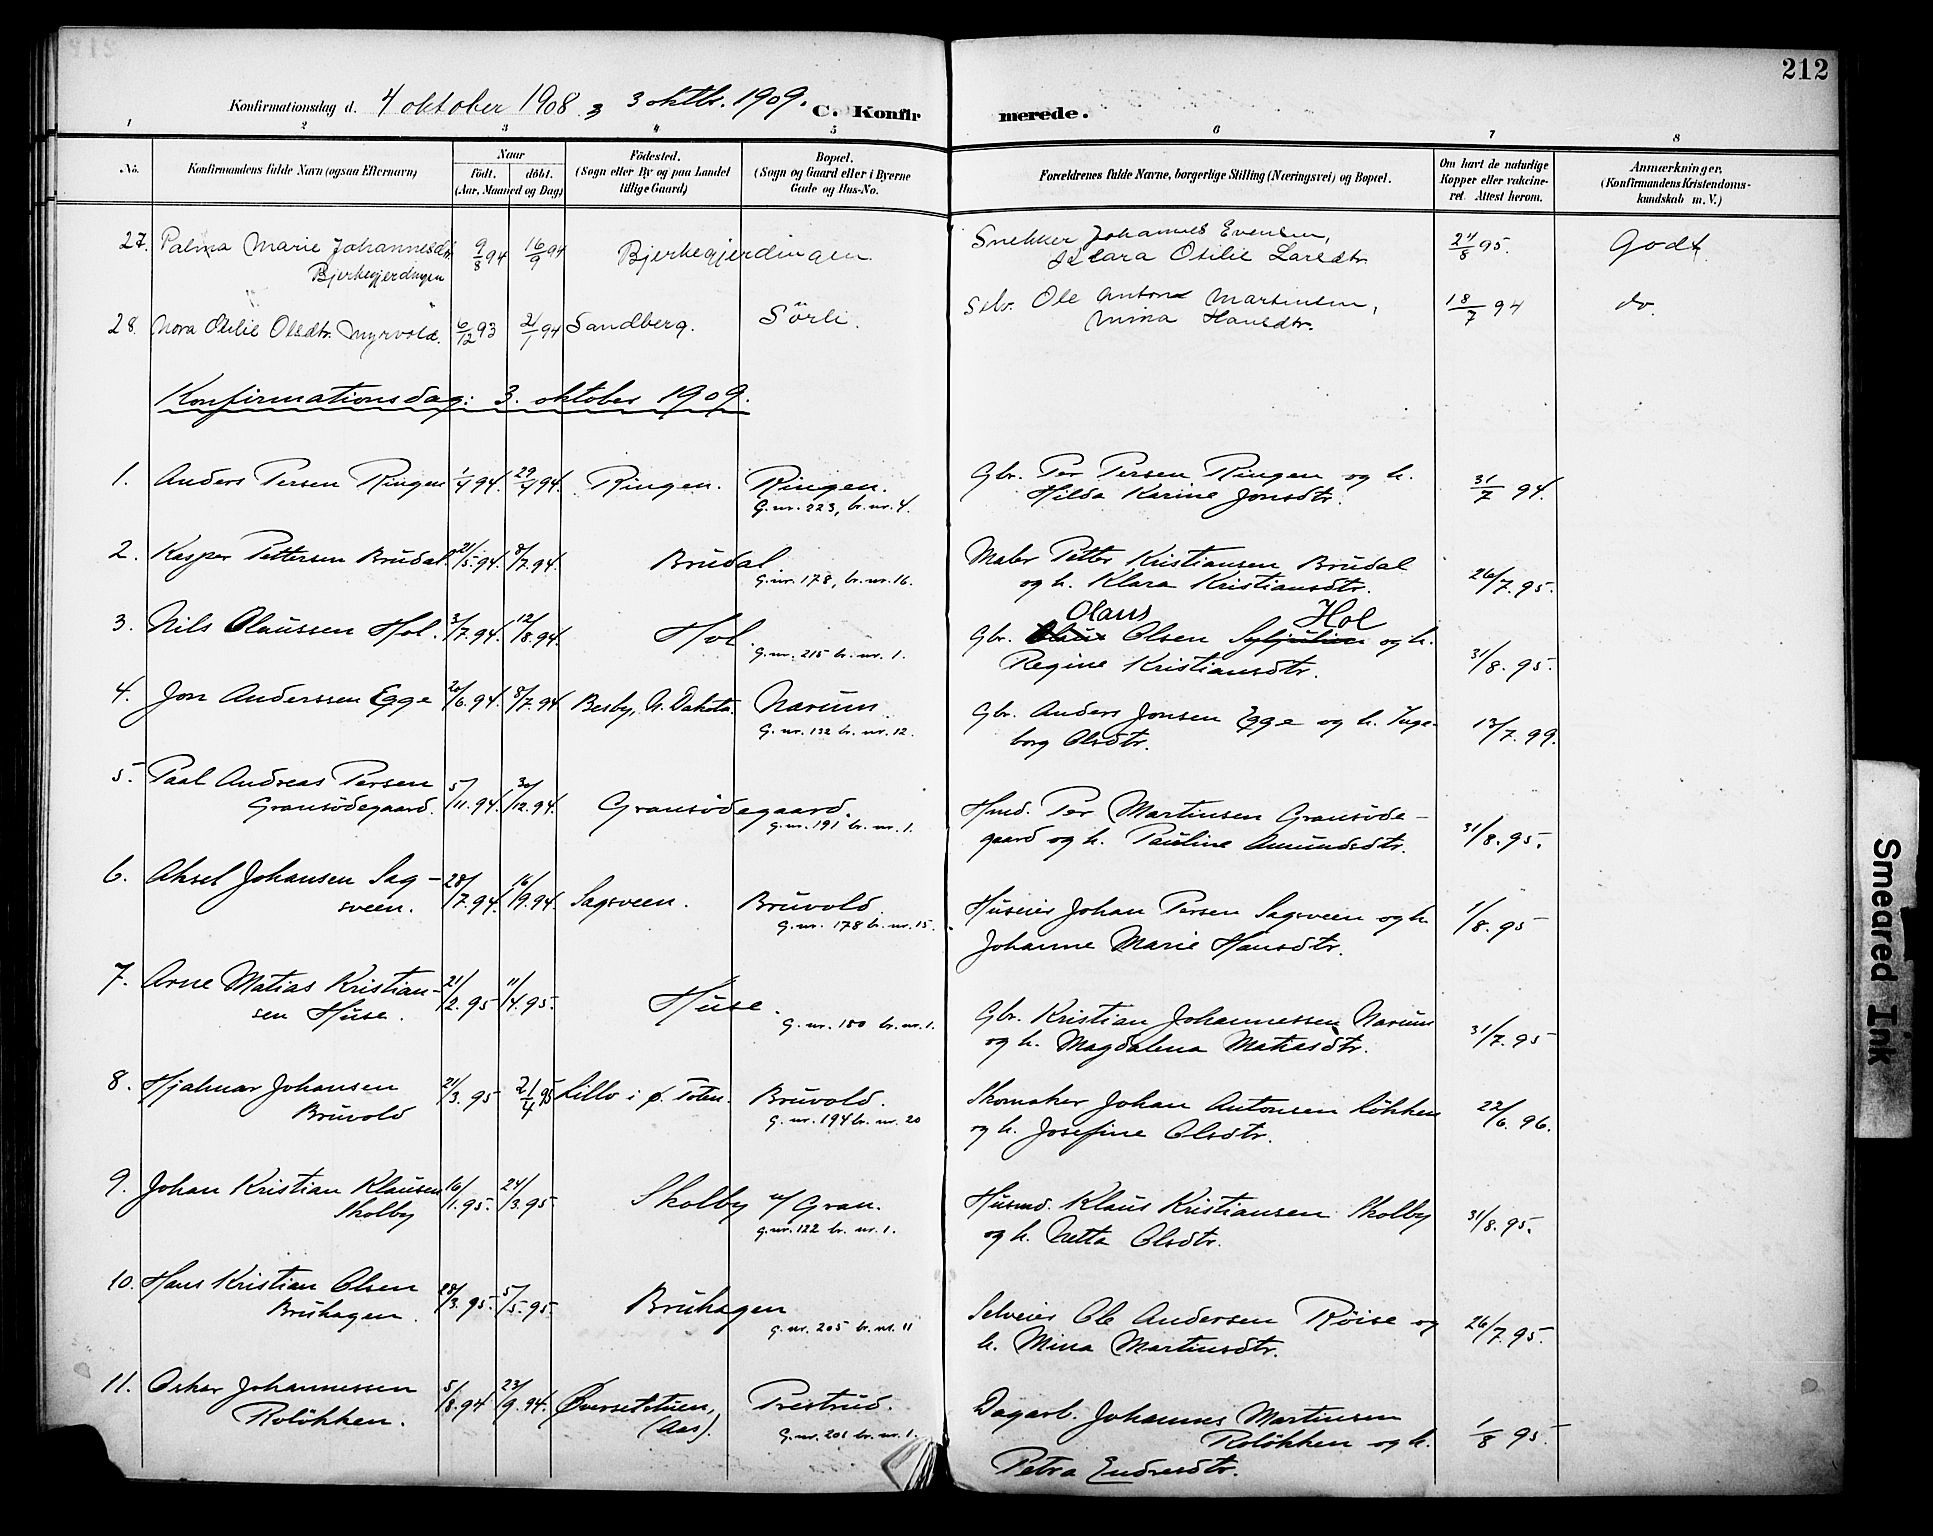 212
Konfirmationsdag d. 4 oktober 1908 3 oktbr. 1909. C. Konfirmerede.
1 2 3 4 5 6 7 8
No.
Konfirmandens fulde Navn (ogsaa Efternavn)
Naar
födt. döbt.
(Aar, Maaned og Dag)
Födested.
(Sogn eller By og paa Landet
tillige Gaard)
Bopæl.
(Sogn og Gaard eller i Byerne
Gade og Hus-No.
Forældrenes fulde Navne, borgerlige Stilling (Næringsvei) og Bopæl.
Om havt de naturlige
Kopper eller vakcine-
ret. Attest herom.
Anmærkninger.
(Konfirmandens Kristendoms-
kundskab m. V.)
27. Palma Marie Johannesdtr 9/8 94 16/9 94 Bjerkegjerdingen Snekker Johannes Evensen, 24/8 95. Godt.
Bjerkegjerdingen Klara Otilie Larsdtr
28. Nora Otilie Olsdtr. Myrvold. 6/12 93 21/1 94 Sandberg. Sörli. Selv. Ole Anton Martinsen, 18/7 94 do.
Mina Hansdtr.
Konfirmationsdag: 3. oktober 1909.
1. Anders Persen Ringen 1/4 94. 29/4 94. Ringen. Ringen. Gbr. Per Persen Ringen og h. 31/7 94.
G.nr. 223, br.nr. 4. Hilda Karine Jonsdtr.
2. Kasper Pettersen Brudal 21/5. 94. 8/7. 94. Brudal Maler Petter Kristiansen Brudal 26/7. 95.
G.nr. 178, br.nr. 16. og h. Klara Kristiansdtr.
Olaus Hol
3. Nils Olaussen Hol. 3/7. 94. 12/8. 94. Hol. Gbr. Olsen og h. 31/8. 95.
G.nr. 215 br.nr. 1. Regine Kristiansdtr.
4. Jon Anderssen Egge 20/6. 94. 8/7. 94 Besby, N. Dakota. Narum. Gbr. Anders Jonsen Egge og h. Inge- 13/7. 99.
G.nr. 132 br.nr. 12. borg Olsdtr.
5. Paal Andreas Persen 5/11. 94. 30/12. 94. Gransödegaard. Husmd. Per Martinsen Gransöde- 31/8. 95.
Gransödegaard. G.nr. 191 br.nr. 1. gaard og h. Pauline Amundsdtr.
6. Aksel Johansen Sag- 28/7. 94. 16/9. 94. Sagsveen. Bruvold. Huseier Johan Persen Sagsveen og h. 1/8. 95
sveen. G.nr. 178 br.nr. 15. Johanne Marie Hansdtr.
7. Arne Matias Kristian- 21/2. 95 11/4. 95. Huse. Gbr. Kristian Johannessen Narum 31/7. 95
sen Huse. G.nr. 180 br.nr. 1. og h. Magdalena Matiasdtr.
8. Hjalmar Johansen 21/3. 95 21/4 95 Lillo i ø. Toten. Bruvold. Skomaker Johan Antonsen Løkken 22/6. 96.
Bruvold G.nr. 194 br.nr. 20 og h. Josefine Olsdtr.
9. Johan Kristian Klausen 16/1. 95. 24/3. 95 Skolby u/ Gran. Husmd. Klaus Kristiansen Skolby 31/8. 95.
Skolby G.nr. 122 br.nr. 1. og h. Netta Olsdtr.
10. Hans Kristian Olsen 28/3. 95. 5/5. 95. Bruhagen Selveier Ole Andersen Røise og 26/7. 95.
Bruhagen. G.nr. 205 br.nr. 11 h. Mina Martinsdtr.
11. Oskar Johannessen 5/8. 94 23/9. 94. Øversetstuen, Prestrud. Dagarb. Johannes Martinsen 1/8 95.
Roløkken. (Aas). G.nr. 201 br.nr. 1. Roløkken og h.
Petra Endresdtr.
Smeared Ink